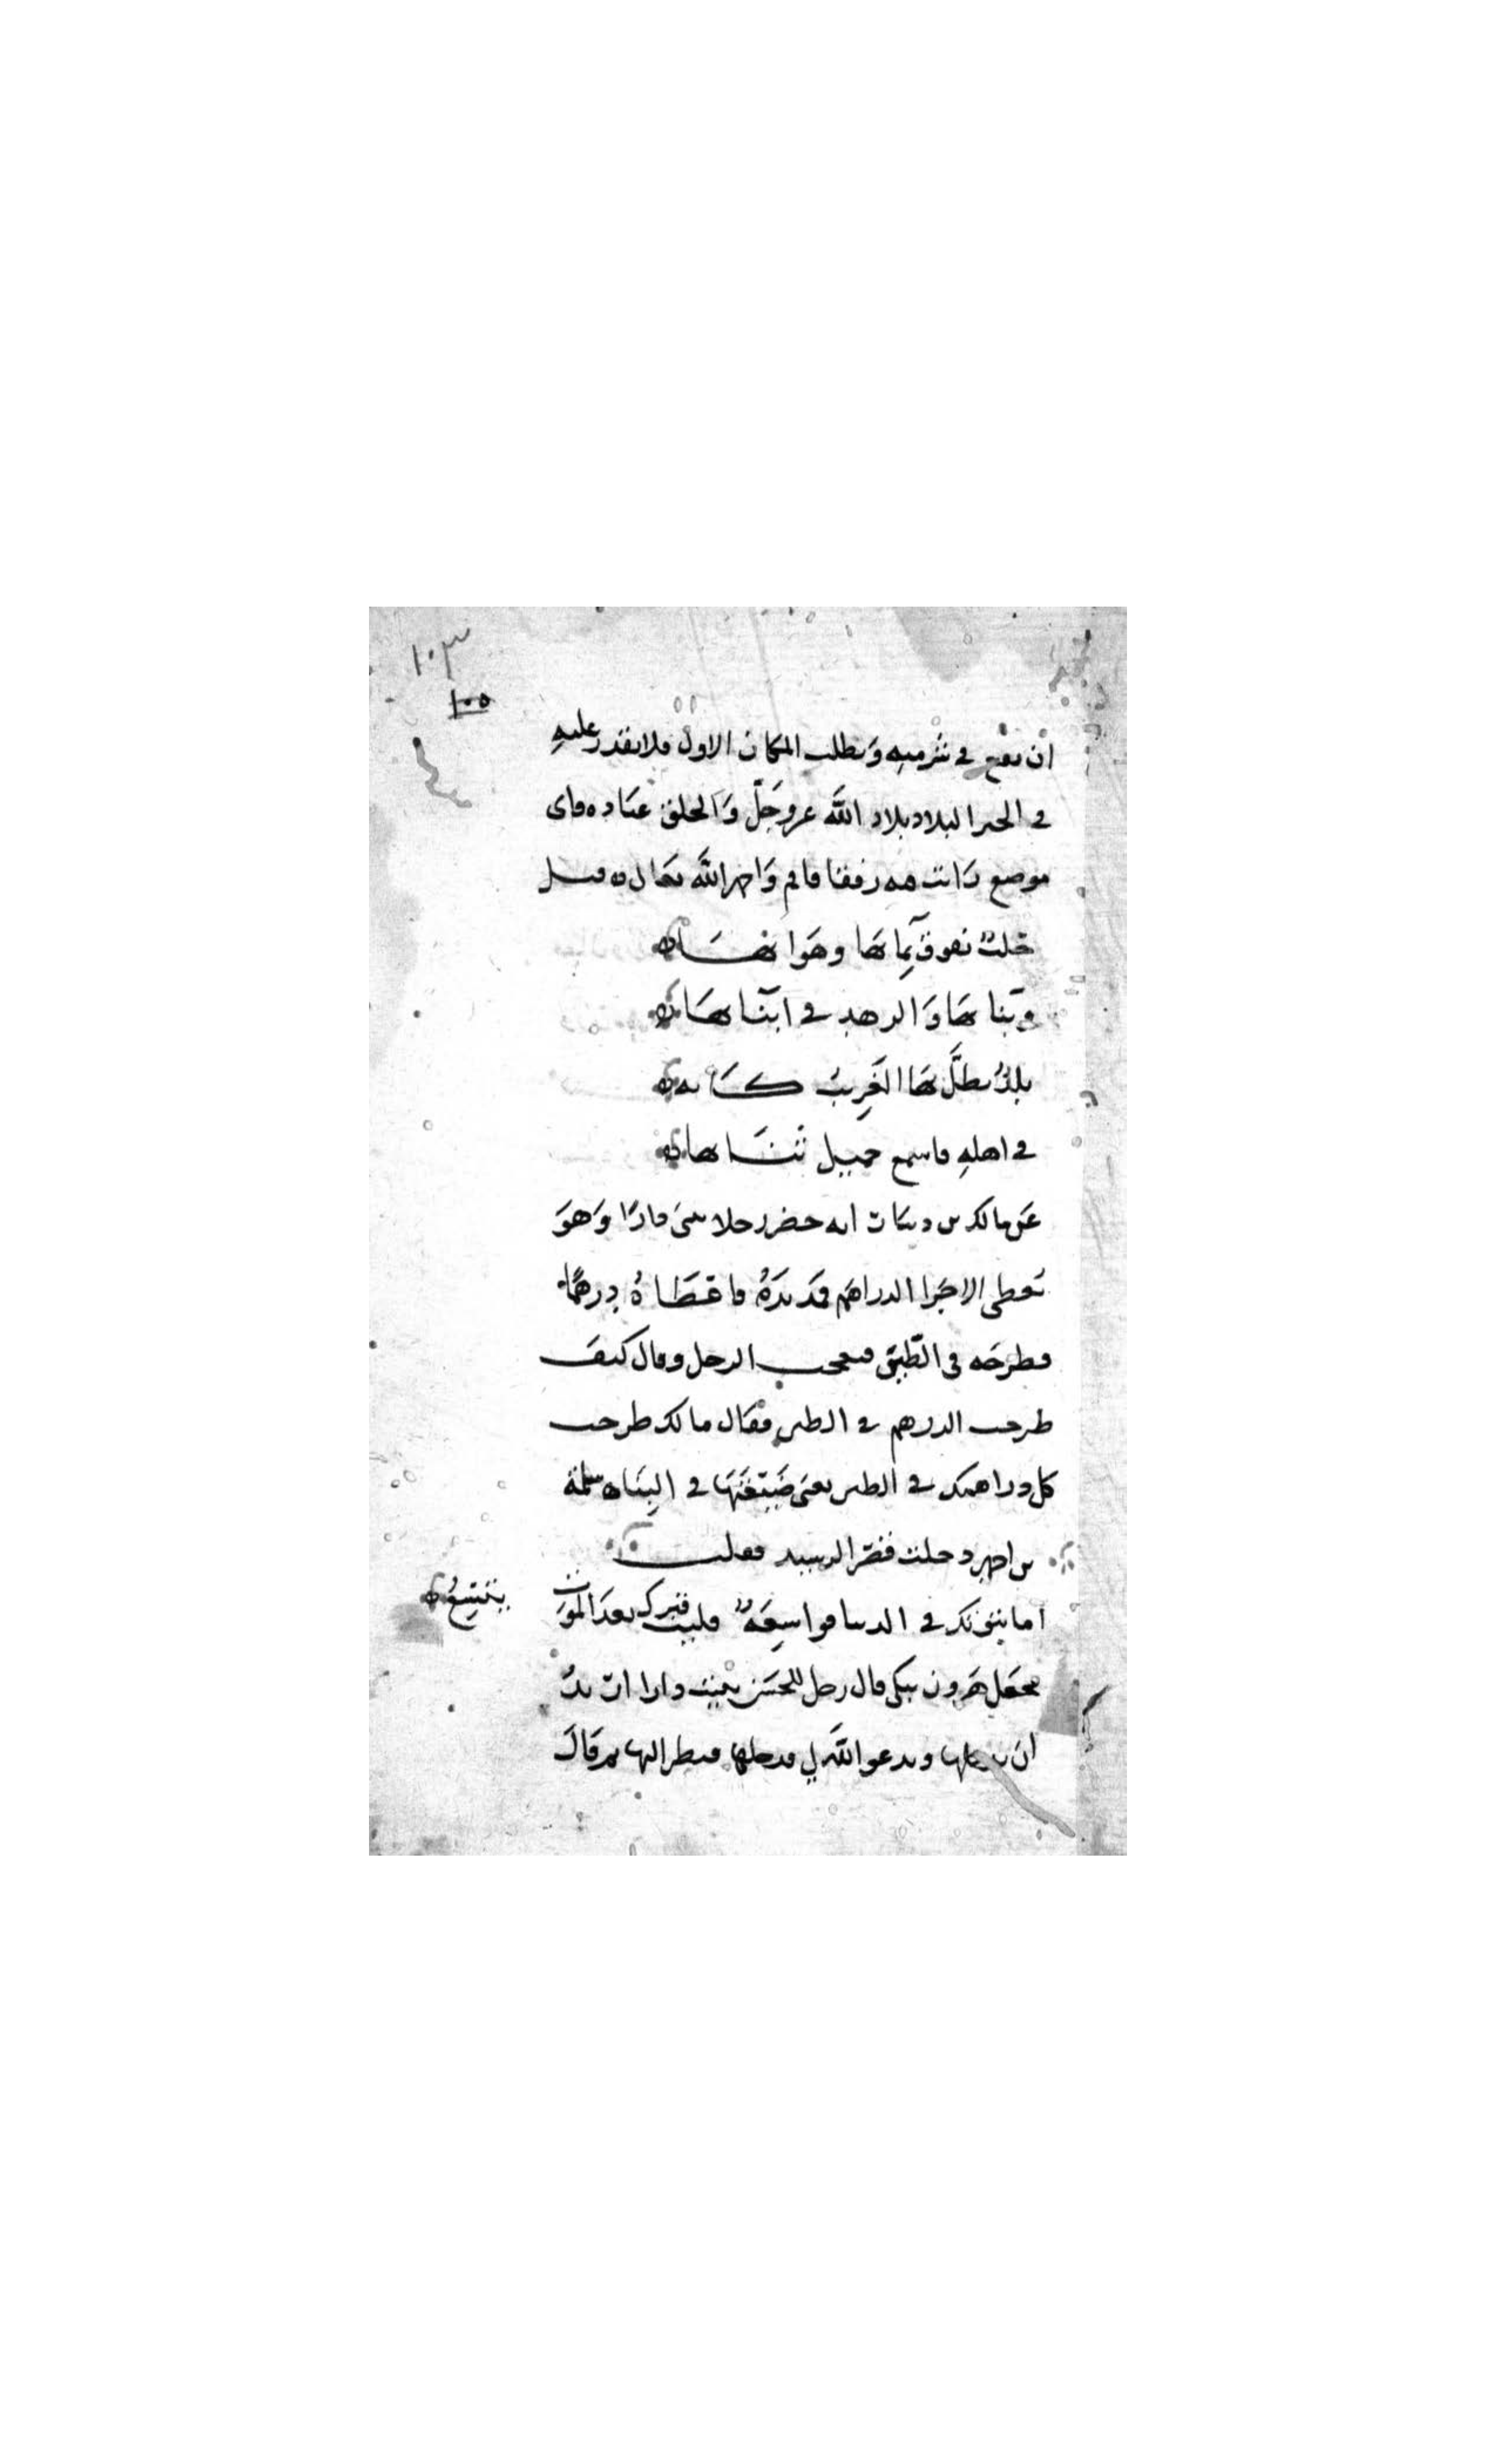 ١٠٣
١٠٥
ان يقع في شر منه ويطلب المكان الاول فلا يقدر عليه
في الخبر البلاد بلاد الله عز وجل والخلق عباده فاى
موضع رايت فيه رفقا فاقم واحمد الله تعالى ه قيل
بلد تفوق بمائها وهوائها ه
وبنائها والزهد في ابنائها ه
بلد يظل بها الغريب كانه ه
في اهله فاسمع جميل ثنائها ه
عن مالك بن دينار انه حضر رجلا يبنى دارا وهو
يعطى الاجرا الدراهم فمد يده فاعطاه درهما
فطرحه في الطين فتعجب الرجل وقال كيف
طرحت الدرهم في الطين فقال مالك طرحت
كل دراهمك في الطين يعنى ضيعتها في البناه سلمة
بن احمد دخلت قصر الرشيد فقلت
اما بيوتك في الدنيا فواسعة فليت قبرك بعد الموت
يتسع ه
فجعل هرون يبكى قال رجل للحسن بنيت دارا اريد
ان تدخلها وتدعو الله لي فدخلها فنظر اليها ثم قال